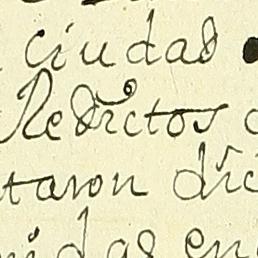 ciudad
Redictos
taron dic
idas en